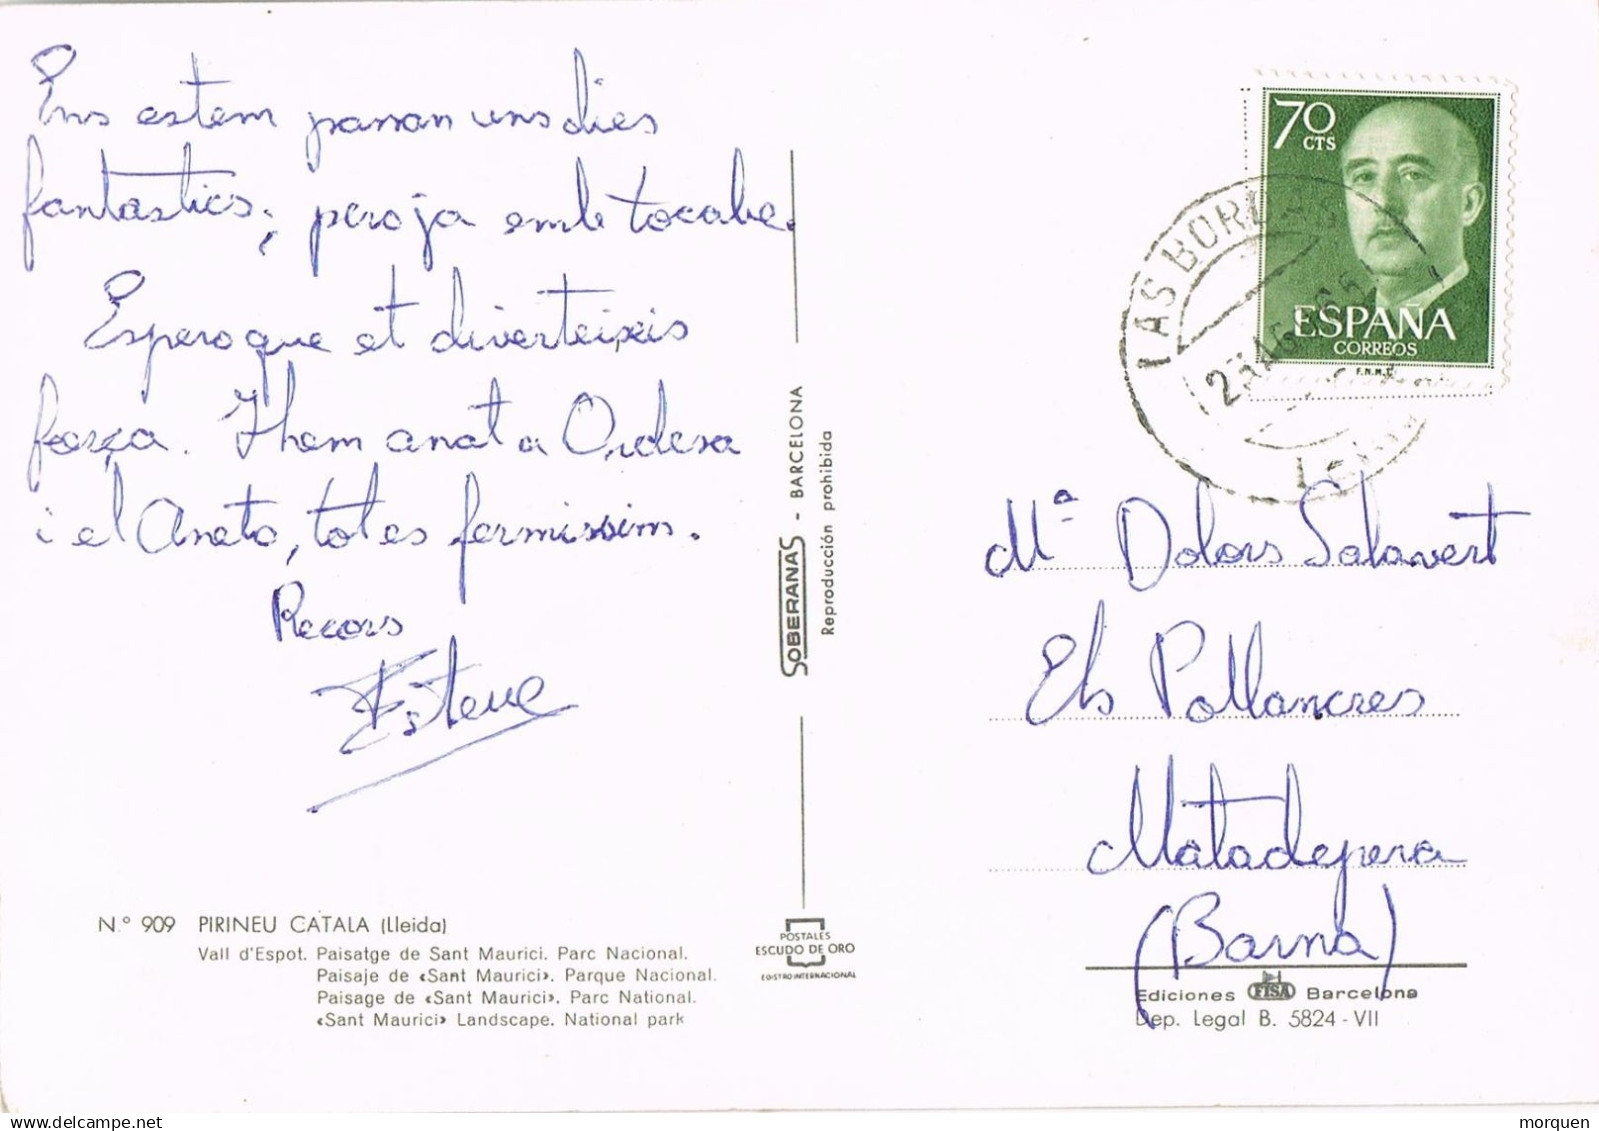 Ens estem passan uns dies
fantastics; pero ja em be tocabe.
Espero que et diverteixis
força. I hem anat a Ordesa
i el Aneto, tot es fermissim.
Recors
Esteve
N.° 909 PIRINEU CATALA (Lleida)
Vall d'Espot. Paisatge de Sant Maurici. Parc Nacional.
Paisaje de «Sant Maurici». Parque Nacional.
Paisage de «Sant Maurici». Parc National.
«Sant Maurici» Landscape. National park
SOBERANAS - BARCELONA
Reproducción prohibida
POSTALES
ESCUDO DE ORO
EGISTRO INTERNACIONAL
70
CTS
ESPAÑA
CORREOS
F.N.M.T.
LAS BORDAS
Mª Dolors Salavert
Els Pollancres
Matadepera
(Barna)
Ediciones FISA Barcelona
Dep. Legal B. 5824 - VII
morquen